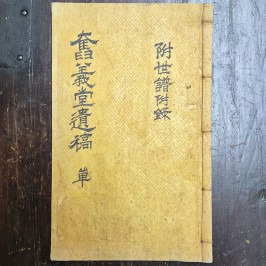 附世譜附錄
奮義堂遺稿 單